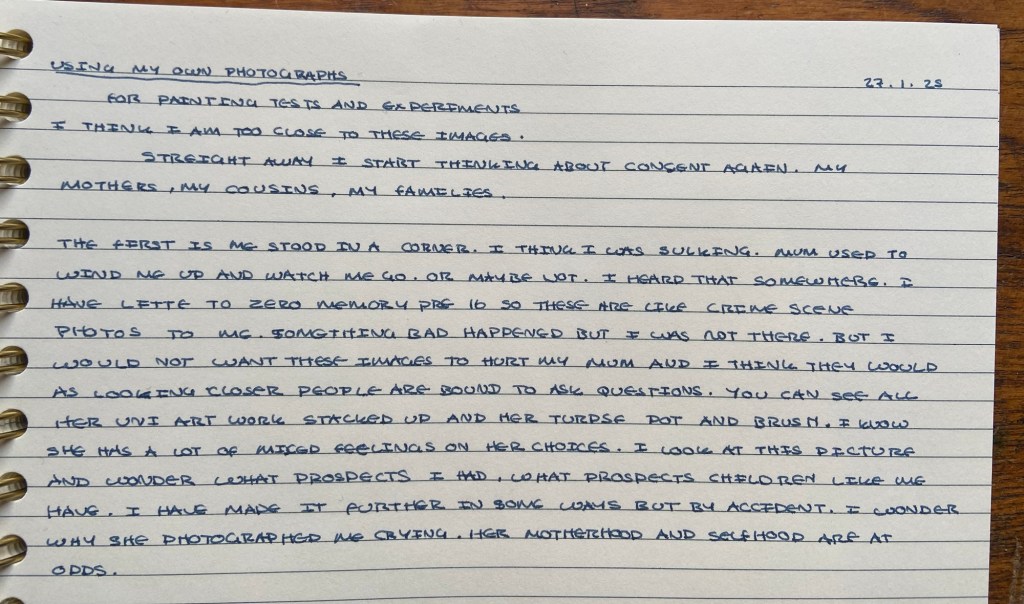 USING MY OWN PHOTOGRAPHS
27.1.25
FOR PAINTING TESTS AND EXPERIMENTS
I THINK I AM TOO CLOSE TO THESE IMAGES.
STREIGHT AWAY I START THINKING ABOUT CONSENT AGAIN. MY
MOTHERS, MY COUSINS, MY FAMELIES.
THE FIRST IS ME STOOD IN A CORNER. I THING I WAS SULKING. MUM USED TO
WIND ME UP AND WATCH ME GO. OR MAYBE NOT. I HEARD THAT SOMEWHERE. I
HAVE LETTE TO ZERO MEMORY PRE 16 SO THESE ARE LIKE CRIME SCENE
PHOTOS TO ME. SOMETHING BAD HAPPENED BUT I WAS NOT THERE. BUT I
WOULD NOT WANT THESE IMAGES TO HURT MY MUM AND I THINK THEY WOULD
AS LOOKING CLOSER PEOPLE ARE BOUND TO ASK QUESTIONS. YOU CAN SEE ALL
HER UNI ART WORK STACKED UP AND HER TURPSE POT AND BRUSH. I KNOW
SHE HAS A LOT OF MIXED FEELINGS ON HER CHOICES. I LOOK AT THIS PICTURE
AND WONDER WHAT PROSPECTS I HAD, WHAT PROSPECTS CHILDREN LIKE ME
HAVE. I HAVE MADE IT FURTHER IN SOME WAYS BUT BY ACCIDENT. I WONDER
WHY SHE PHOTOGRAPHED ME CRYING. HER MOTHERHOOD AND SELFHOOD ARE AT
ODDS.